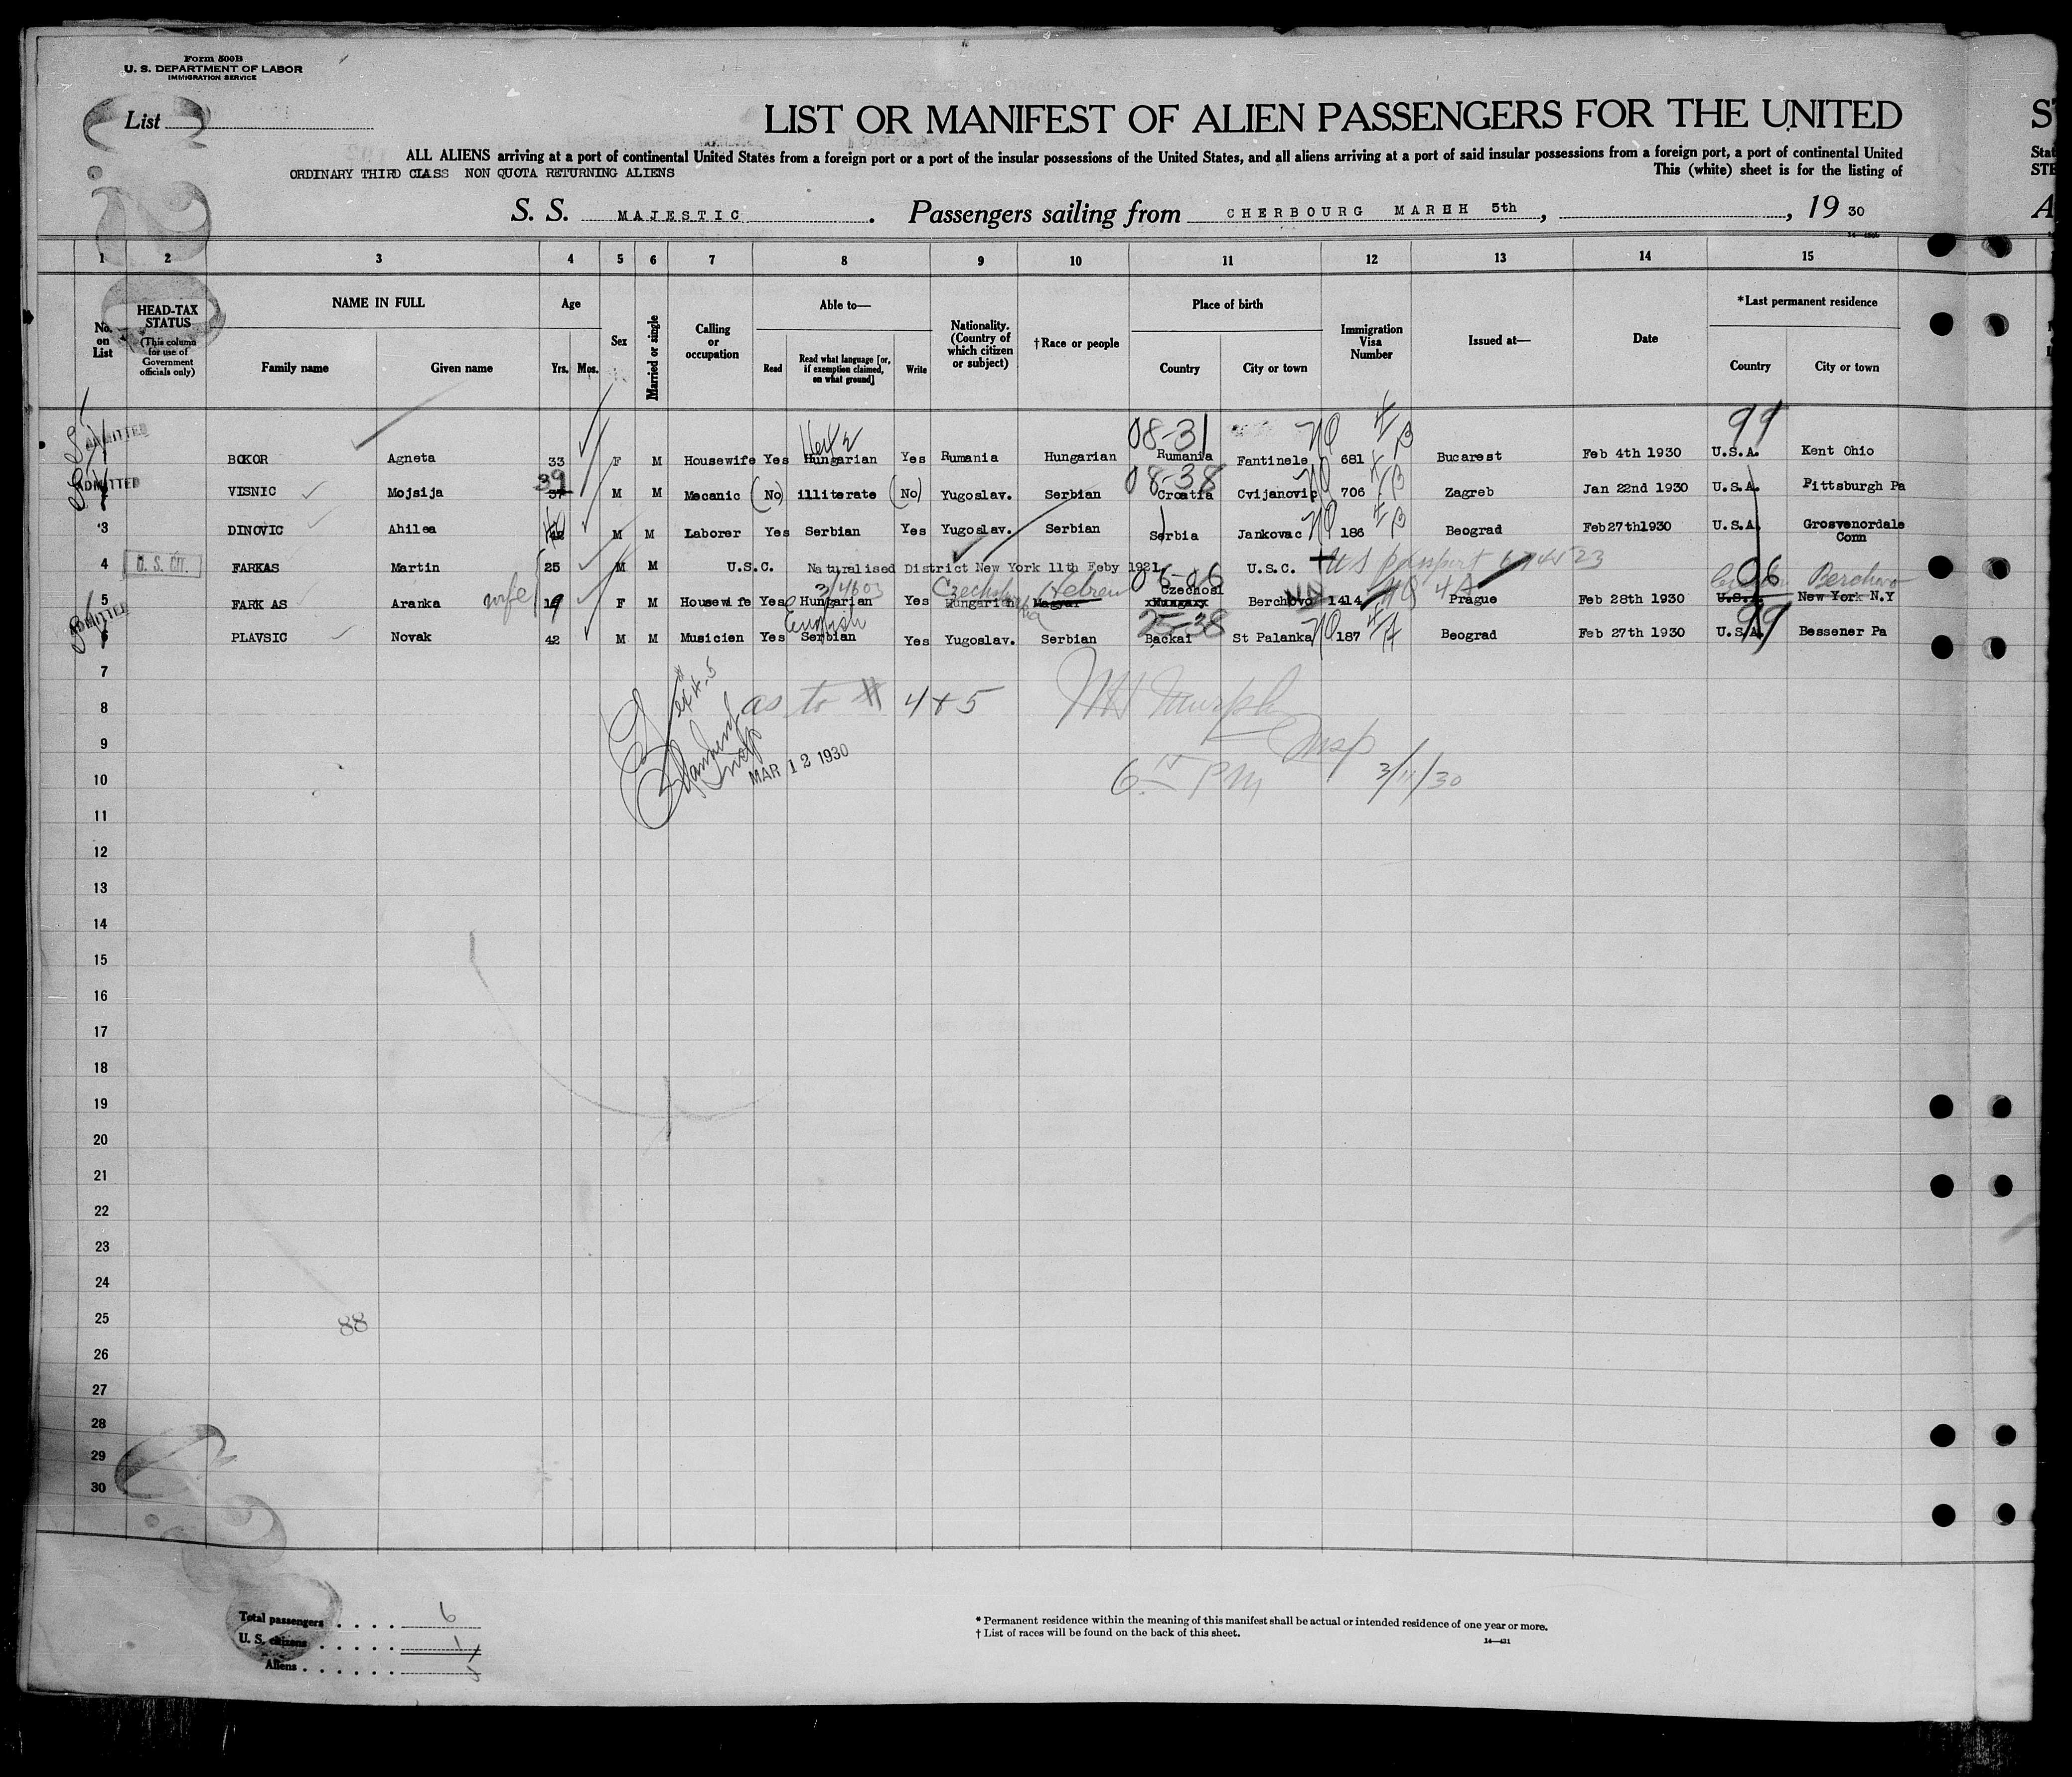 Form 500B
U. S. DEPARTMENT OF LABOR
IMMIGRATION SERVICE
List
LIST OR MANIFEST OF ALIEN PASSENGERS FOR THE UNITED
ALL ALIENS arriving at a port of continental United States from a foreign port or a port of the insular possessions of the United States, and all aliens arriving at a port of said insular possessions from a foreign port, a port of continental United
ORDINARY THIRD CLASS NON QUOTA RETURNING ALIENS This (white) sheet is for the listing of
S. S. MAJESTIC . Passengers sailing from CHERBOURG MARHH 5th, , 19 30
1 2 3 4 5 6 7 8 9 10 11 12 13 14 15
No. on List
HEAD-TAX STATUS
(This column for use of Government officials only)
NAME IN FULL
Family name Given name
Age
Yrs. Mos.
Sex
Married or single
Calling or occupation
Able to—
Read Read what language [or, if exemption claimed, on what ground] Write
Nationality. (Country of which citizen or subject)
†Race or people
Place of birth
Country City or town
Immigration Visa Number
Issued at—
Date
*Last permanent residence
Country City or town
08-31 99
ADMITTED BOKOR Agneta 33 F M Housewife Yes Hungarian Yes Rumania Hungarian Rumania Fantinele 681 Bucarest Feb 4th 1930 U.S.A. Kent Ohio
39 08-38
ADMITTED VISNIC Mojsija 37 M M Mecanic (No) illiterate (No) Yugoslav. Serbian Croatia Cvijanovic 706 Zagreb Jan 22nd 1930 U.S.A. Pittsburgh Pa
3 DINOVIC Ahilea 42 M M Laborer Yes Serbian Yes Yugoslav. Serbian Serbia Jankovac 186 Beograd Feb27th1930 U.S.A. Grosvenordale Conn
4 U. S. CIT. FARKAS Martin 25 M M U.S.C. Naturalised District New York 11th Feby 1921 U.S.C. US passport
06-06 Hebrew Czechosl 06
5 FARK AS Aranka wife 19 F M Housewife Yes Hungarian Yes Hungarian Magyar xHungaryx Berchovo 1414 Prague Feb 28th 1930 U.S.A. New York N.Y
English 25-38 99
ADMITTED PLAVSIC Novak 42 M M Musicien Yes Serbian Yes Yugoslav. Serbian Backai St Palanka 187 Beograd Feb 27th 1930 U.S.A. Bessener Pa
7
8 as to # 4 + 5
9 Insp
MAR 12 1930
10 PM 3/11/30
11
12
13
14
15
16
17
18
19
20
21
22
23
24
25 88
26
27
28
29
30
Total passengers 6
U. S. citizens 1
Aliens 5
* Permanent residence within the meaning of this manifest shall be actual or intended residence of one year or more.
† List of races will be found on the back of this sheet.
14—421